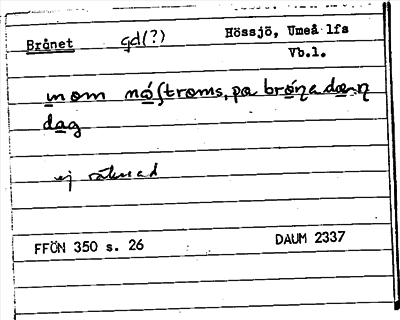 Brånet gd(?) Hössjö, Umeå lfs
Vb.l.
mom nóʃtroms, pa bróna dæn
dag
ej räknad
FFÖN 350 s. 26 DAUM 2337